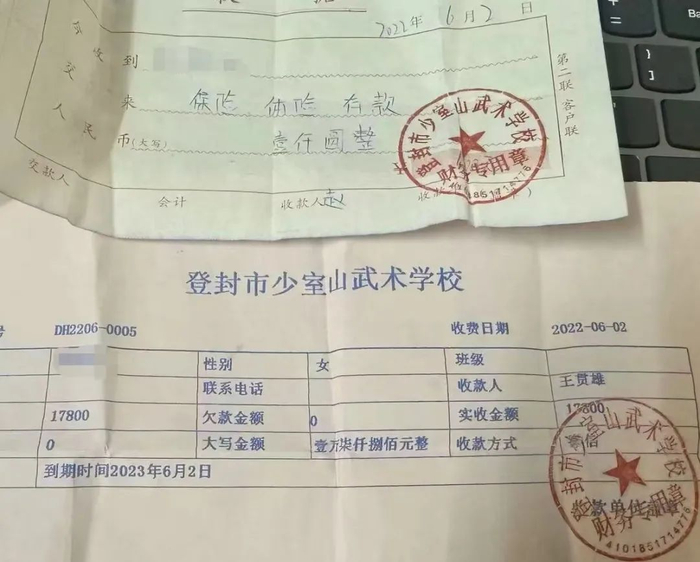 2022年6月2日
今收到
交来 保险 体险 存款
人民币(大写) 壹仟圆整
第二联 客户联
交款人 会计 收款人 赵 收款
登封市少室山武术学校
财务专用章
4101851714776
登封市少室山武术学校
号 DH2206-0005 收费日期 2022-06-02
性别 女 班级
联系电话 收款人 王贯雄
17800 欠款金额 0 实收金额 17800
0 大写金额 壹万柒仟捌佰元整 收款方式
到期时间2023年6月2日
款单位盖章
登封市少室山武术学校
财务专用章
4101851714776